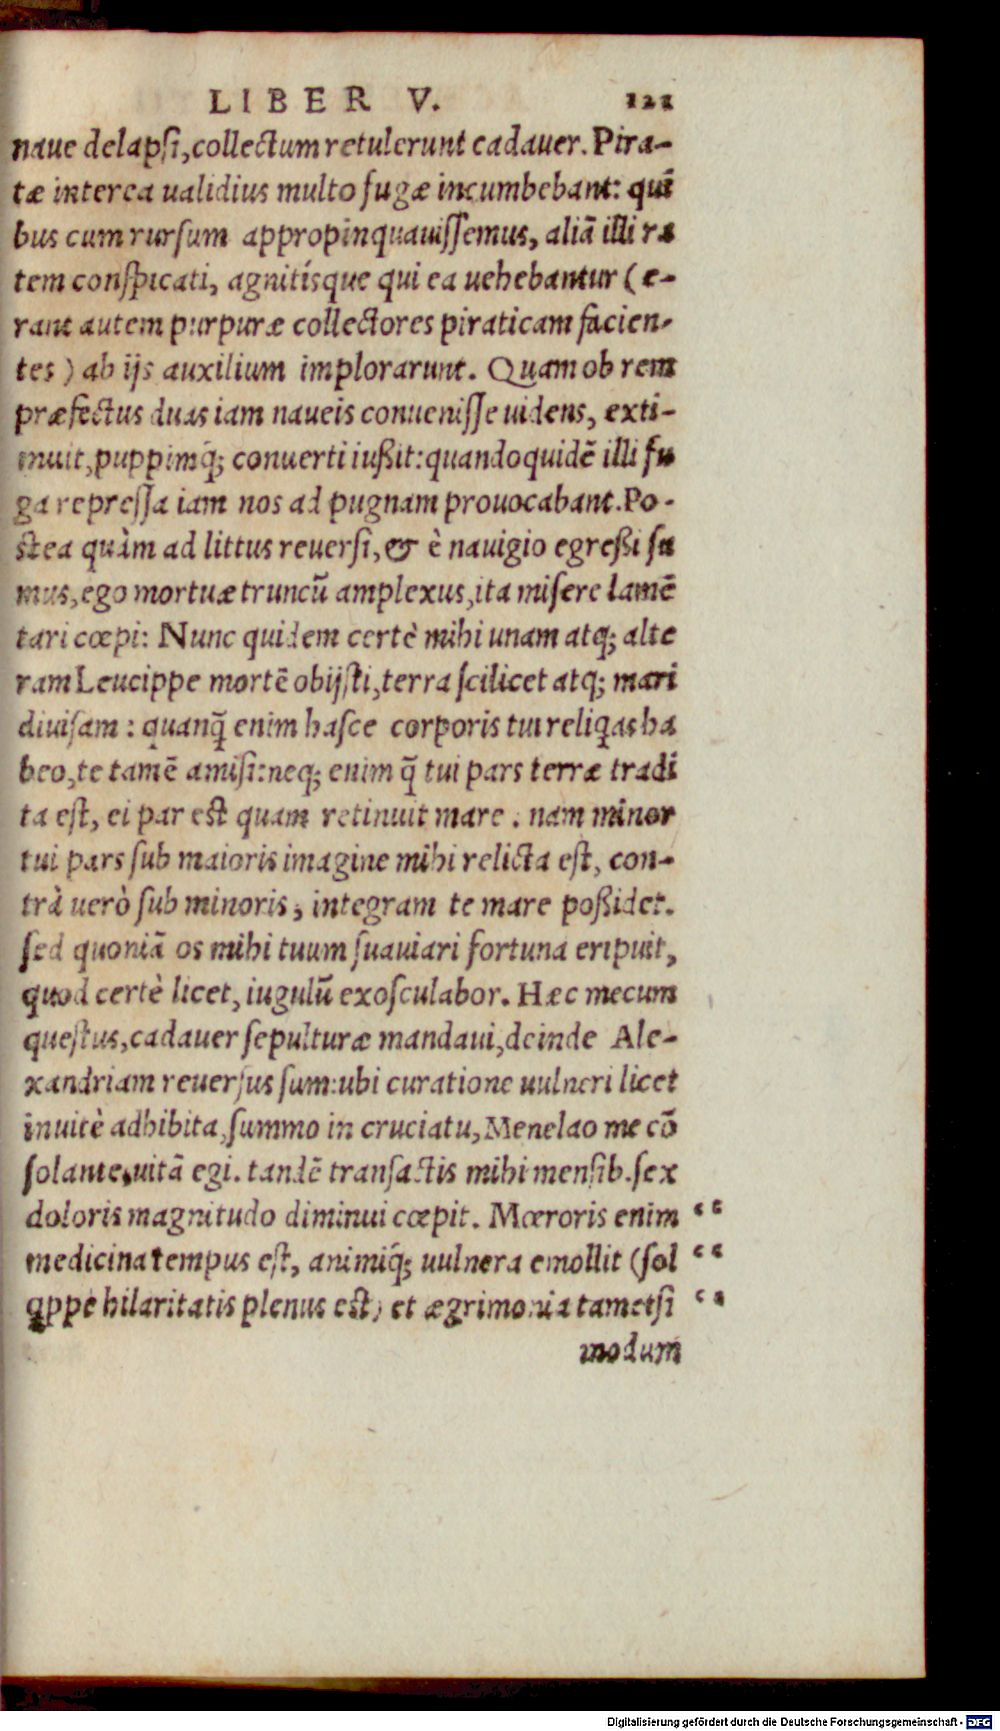 LIBER V. 121
naue delapsi, collectum retulerunt cadauer. Pira-
tæ interea ualidius multo fugæ incumbebant: qui
bus cum rursum appropinquauissemus, aliã illi ra
tem conspicati, agnitísque qui ea uehebantur (e-
rant autem purpuræ collectores piraticam facien-
tes) ab ijs auxilium implorarunt. Quam ob rem
præfectus duas iam naueis conuenisse uidens, exti-
muit, puppimq́; conuerti iußit: quandoquidẽ illi fu
ga repressa iam nos ad pugnam prouocabant. Po-
stea quàm ad littus reuersi, & è nauigio egreßi su
mus, ego mortuæ truncũ amplexus, ita misere lamẽ
tari cœpi: Nunc quidem certè mihi unam atq; alte
ram Leucippe mortẽ obijsti, terra scilicet atq; mari
diuisam: quanq̃ enim hasce corporis tui reliqas ha
beo, te tamẽ amisi: neq; enim q̃ tui pars terræ tradi
ta est, ei par est quam retinuit mare. nam minor
tui pars sub maioris imagine mihi relicta est, con-
trà uerò sub minoris, integram te mare poßidet.
sed quoniã os mihi tuum suauiari fortuna eripuit,
quod certè licet, iugulũ exosculabor. Hæc mecum
questus, cadauer sepulturæ mandaui, deinde Ale-
xandriam reuersus sum: ubi curatione uulneri licet
inuitè adhibita, summo in cruciatu, Menelao me cõ
solante, uitã egi. tandẽ transactis mihi mensib. sex
doloris magnitudo diminui cœpit. Mœroris enim “
medicina tempus est, animiq́; uulnera emollit (sol “
qppe hilaritatis plenus est) et ægrimonia tametsi “
modum
Digitalisierung gefördert durch die Deutsche Forschungsgemeinschaft - DFG